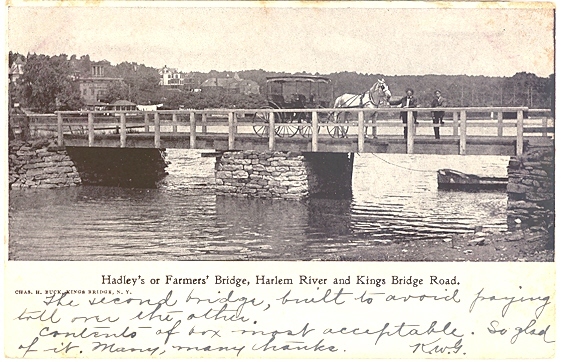 Hadley's or Farmers' Bridge, Harlem River and Kings Bridge Road.
CHAS. H. BUCK, KINGS BRIDGE, N. Y.
The second bridge, built to avoid paying
toll over the other.
Contents of box most acceptable. So glad
of it. Many, many thanks. K.W.G.